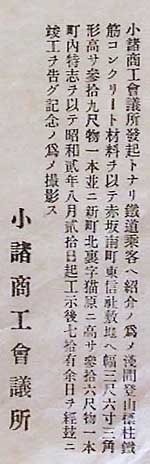 小諸商工會議所發起トナリ鐵道乘客ヘ紹介ノ爲メ淺間登山標柱鐵
筋コンクリート材料ヲ以テ赤坂南町東信社敷地ヘ幅二尺六寸三角
形高サ參拾九尺物一本並ニ新町北裏字猫原ニ高サ參拾六尺物一本
町內特志ヲ以テ昭和貳年八月貳拾日起工示後七拾有余日ヲ經玆ニ
竣工ヲ告グ記念ノ爲メ撮影ス
小諸商工會議所